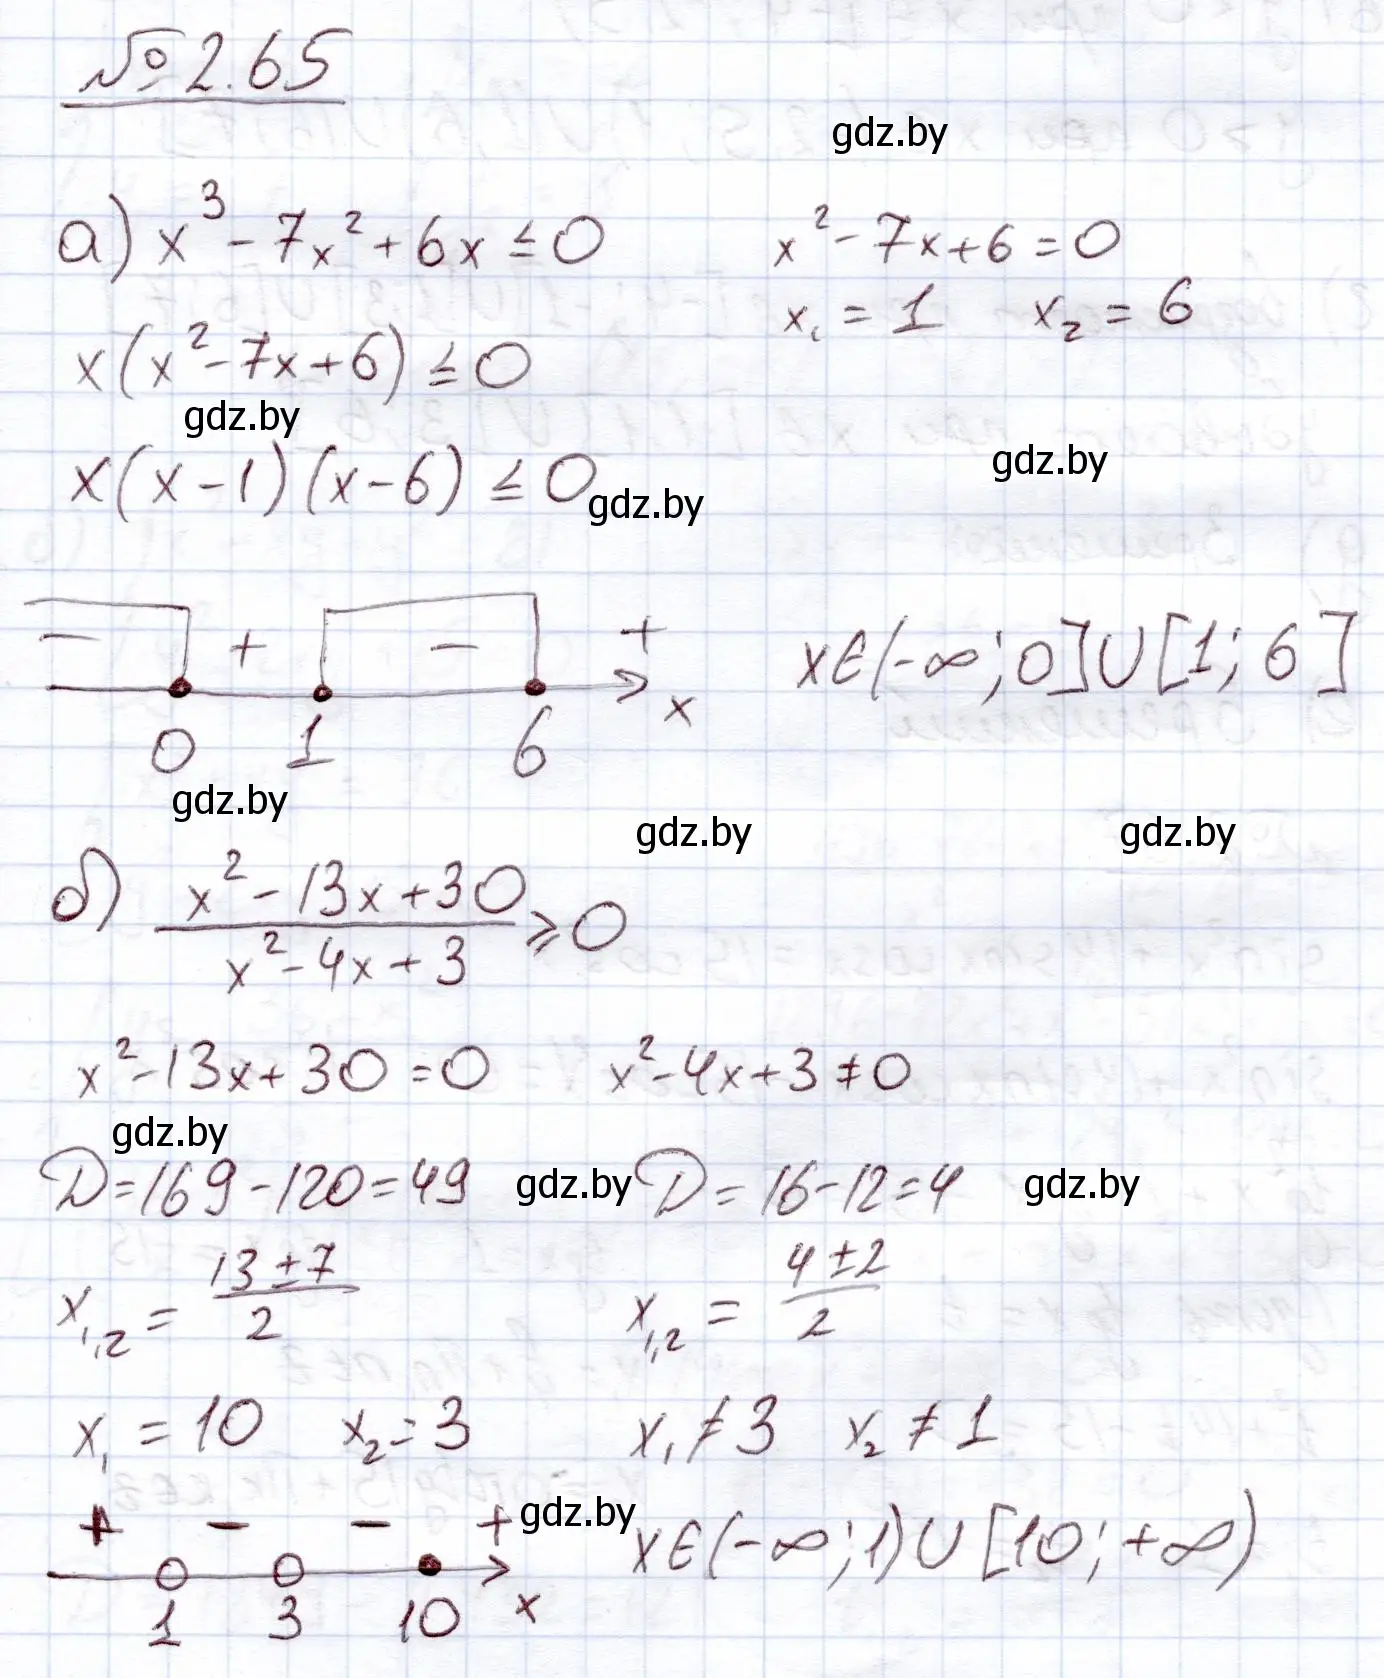 №2.65
gdz.by
а) x³ - 7x² + 6x ≤ 0    x² - 7x + 6 = 0
x₁ = 1    x₂ = 6
x(x² - 7x + 6) ≤ 0
gdz.by
gdz.by
x(x - 1)(x - 6) ≤ 0
gdz.by
- + - +
x∈(-∞; 0]∪[1; 6]
0 1 6 x
gdz.by
gdz.by gdz.by
б) (x² - 13x + 30)/(x² - 4x + 3) ≥ 0
x² - 13x + 30 = 0    x² - 4x + 3 ≠ 0
gdz.by
D = 169 - 120 = 49    gdz.by    D = 16 - 12 = 4    gdz.by
x₁,₂ = (13 ± 7)/2    x₁,₂ = (4 ± 2)/2
x₁ = 10    x₂ = 3    x₁ ≠ 3    x₂ ≠ 1
+ - - +    gdz.by
x∈(-∞; 1)∪[10; +∞)
1 3 10 x